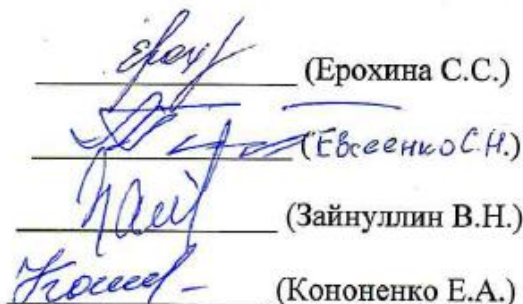 (Ерохина С.С.)
(Евсеенко С.Н.)
(Зайнуллин В.Н.)
(Кононенко Е.А.)